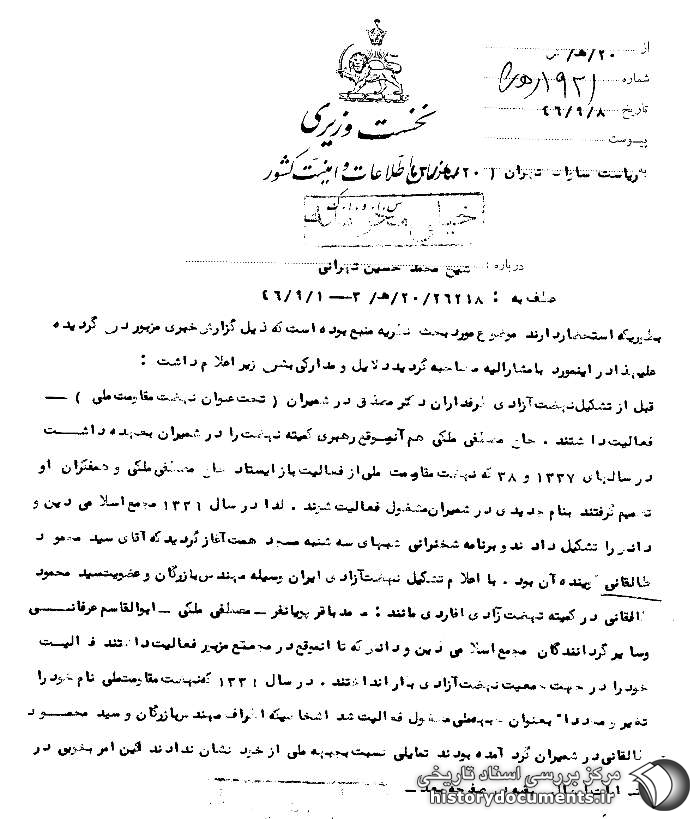 از ۲۰/هـ
شماره
تاریخ ۴۶/۹/۸
پیوست
نخست وزیری
سازمان اطلاعات و امنیت کشور
به ریاست ساواک تهران
خیلی محرمانه
درباره : شیخ محمد حسین تهرانی
عطف به : ۲۰/۲۶۲۱۸/هـ ۳ — ۴۶/۹/۱
بطوریکه استحضار دارند موضوع مورد بحث نظریه منبع بوده است که ذیل گزارش خبری مزبور درج گردیده
علیهذا در اینمورد با مشارالیه مصاحبه گردید دلایل و مدارکی بشرح زیر اعلام داشت :
قبل از تشکیل نهضت آزادی طرفداران دکتر مصدق در شمیران ( تحت عنوان نهضت مقاومت ملی ) —
فعالیت داشتند . حاج مصطفی ملکی هم آنموقع رهبری کمیته نهضت را در شمیران بعهده داشت
در سالهای ۱۳۳۷ و ۳۸ که نهضت مقاومت ملی از فعالیت باز ایستاد حاج مصطفی ملکی و همفکران او
تصمیم گرفتند بنام جدیدی در شمیران مشغول فعالیت شوند . لذا در سال ۱۳۳۹ مجمع اسلامی دین و
دانش را تشکیل دادند و برنامه سخنرانی شبهای سه شنبه مسجد همت آغاز گردید که آقای سید محمود
طالقانی گوینده آن بود . با اعلام تشکیل نهضت آزادی ایران وسیله مهندس بازرگان و عضویت سید محمود
طالقانی در کمیته نهضت آزادی افرادی مانند : محمد باقر — مصطفی ملکی — ابوالقاسم عرفانی
وسایر گردانندگان مجمع اسلامی دین و دانش که تا آنموقع در مجتمع مزبور فعالیت داشتند فعالیت
خود را در جهت جمعیت نهضت آزادی بکار انداختند . در سال ۱۳۳۹ که نهضت مقاومت ملی نام خود را
تغییر و مجددا" بعنوان جبهه ملی مشغول فعالیت شد اشخاصیکه اطراف مهندس بازرگان و سید محمود
طالقانی در شمیران گرد آمده بودند تمایلی نسبت بجبهه ملی از خود نشان ندادند این امر بخوبی در
مرکز بررسی اسناد تاریخی
historydocuments.ir